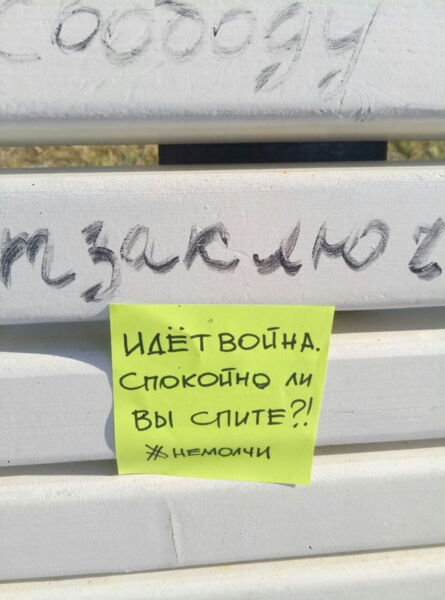 свободу
тзаключ
ИДЁТ ВОЙНА.
СПОКОЙНО ЛИ
ВЫ СПИТЕ?!
#НЕМОЛЧИ